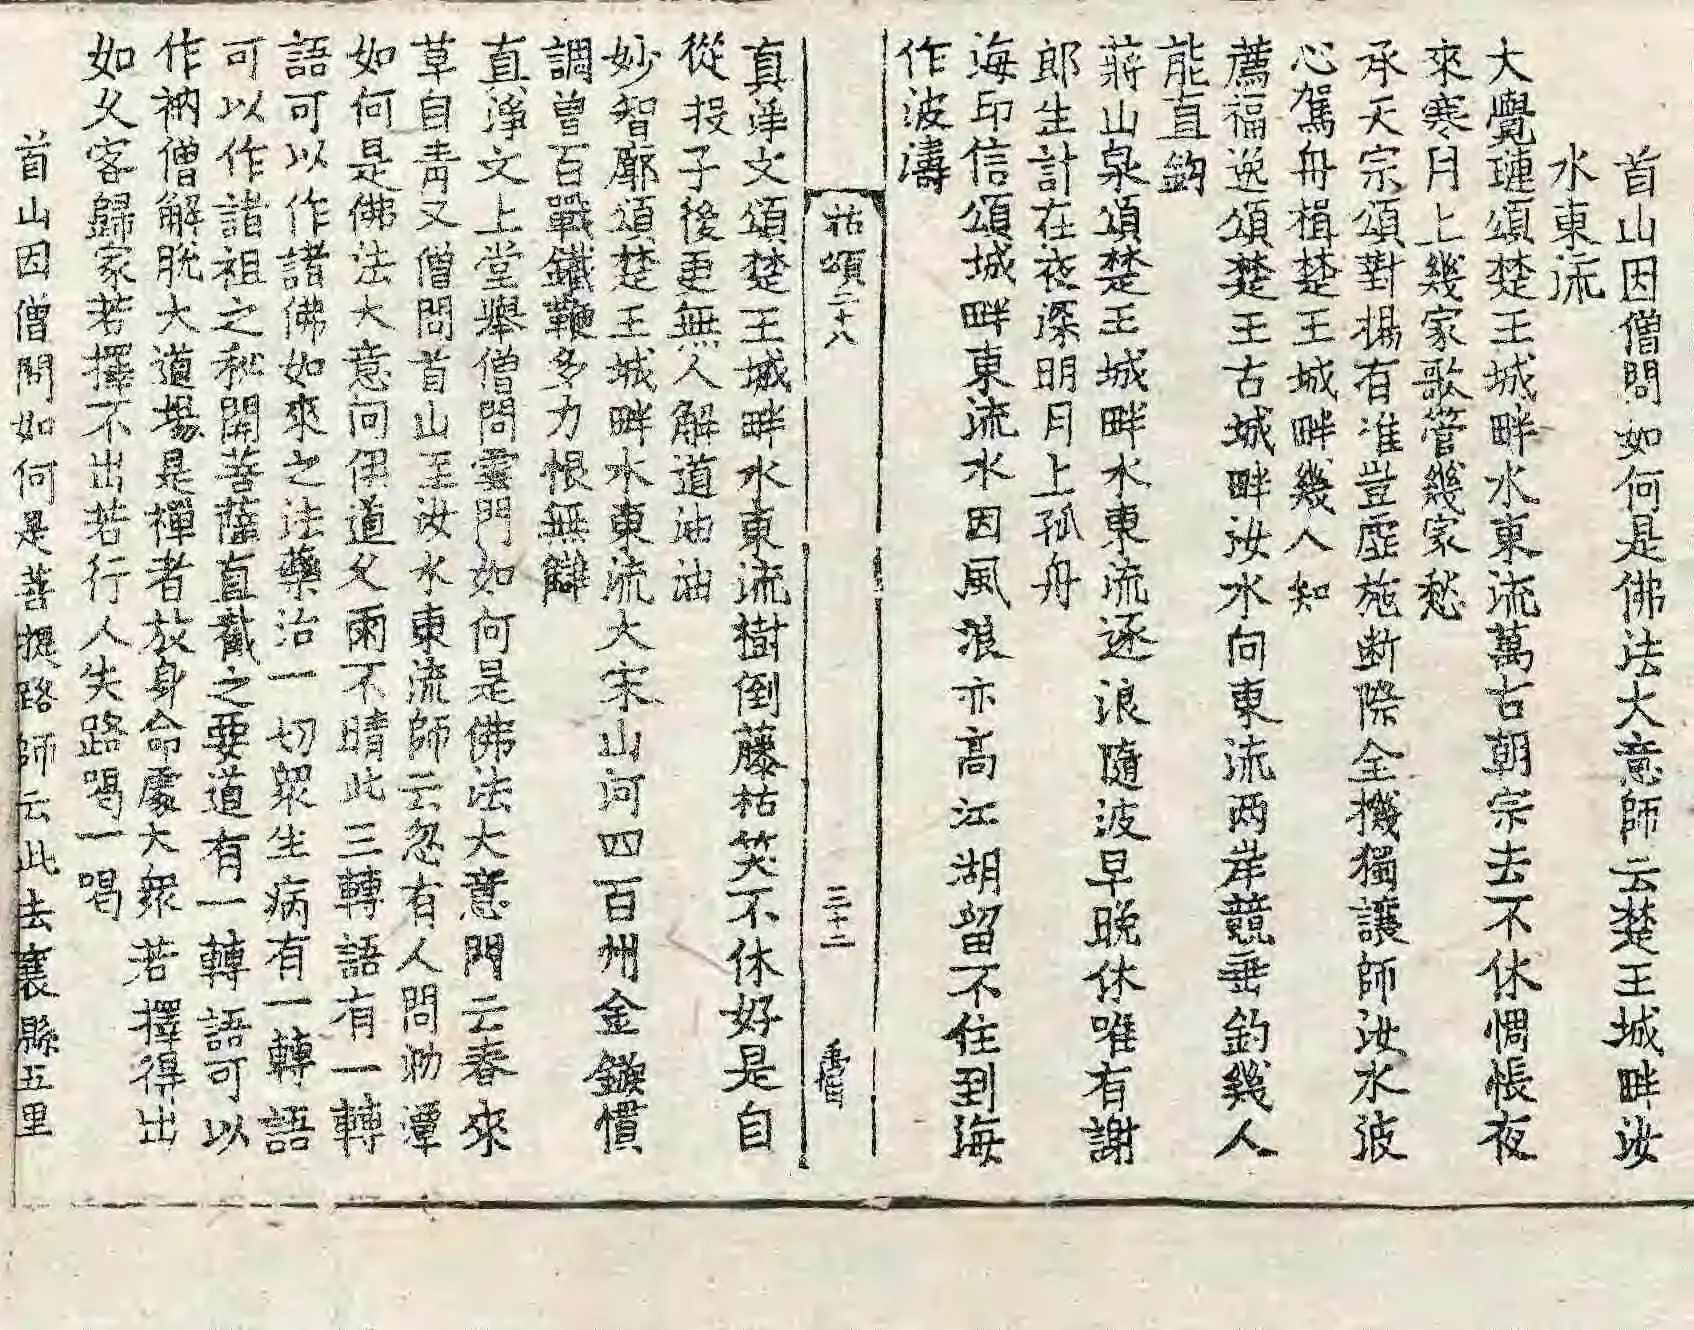 首山因僧問如何是佛法大意師云楚王城畔汝
水東流
大覺璉頌楚王城畔水東流萬古朝宗去不休惆悵夜
來寒月上幾家歌管幾家愁
承天宗頌對揚有准豈虛施断際全機獨讓師汝水波
心駕舟楫楚王城畔幾人知
薦福逸頌楚王古城畔汝水向東流两岸競垂釣幾人
能直鈎
蔣山泉頌楚王城畔水東流逐浪隨波早晚休唯有謝
郎生計在夜深明月上孤舟
海印信頌城畔東流水因風浪亦高江湖留不住到海
作波濤
拈頌二十八
三十二
真淨文頌楚王城畔水東流樹倒藤枯笑不休好是自
從投子後更無人解道油油
妙智廓頌楚王城畔水東流大宋山河四百州金鏃慣
調曾百戰鐵鞭多力恨無讎
真淨文上堂舉僧問雲門如何是佛法大意門云春來
草自靑又僧問首山王汝水東流師云忽有人問泐潭
如何是佛法大意向伊道父雨不晴此三轉語有一轉
語可以作諸佛如來之法藥治一切衆生病有一轉語
可以作諸祖之秘開菩薩直截之要道有一轉語可以
作衲僧解脫大道場是禪者放身命處大衆若擇得出
如父客歸家若擇不出若行人失路喝一喝
首山因僧問如何是菩提路師云此去襄縣五里